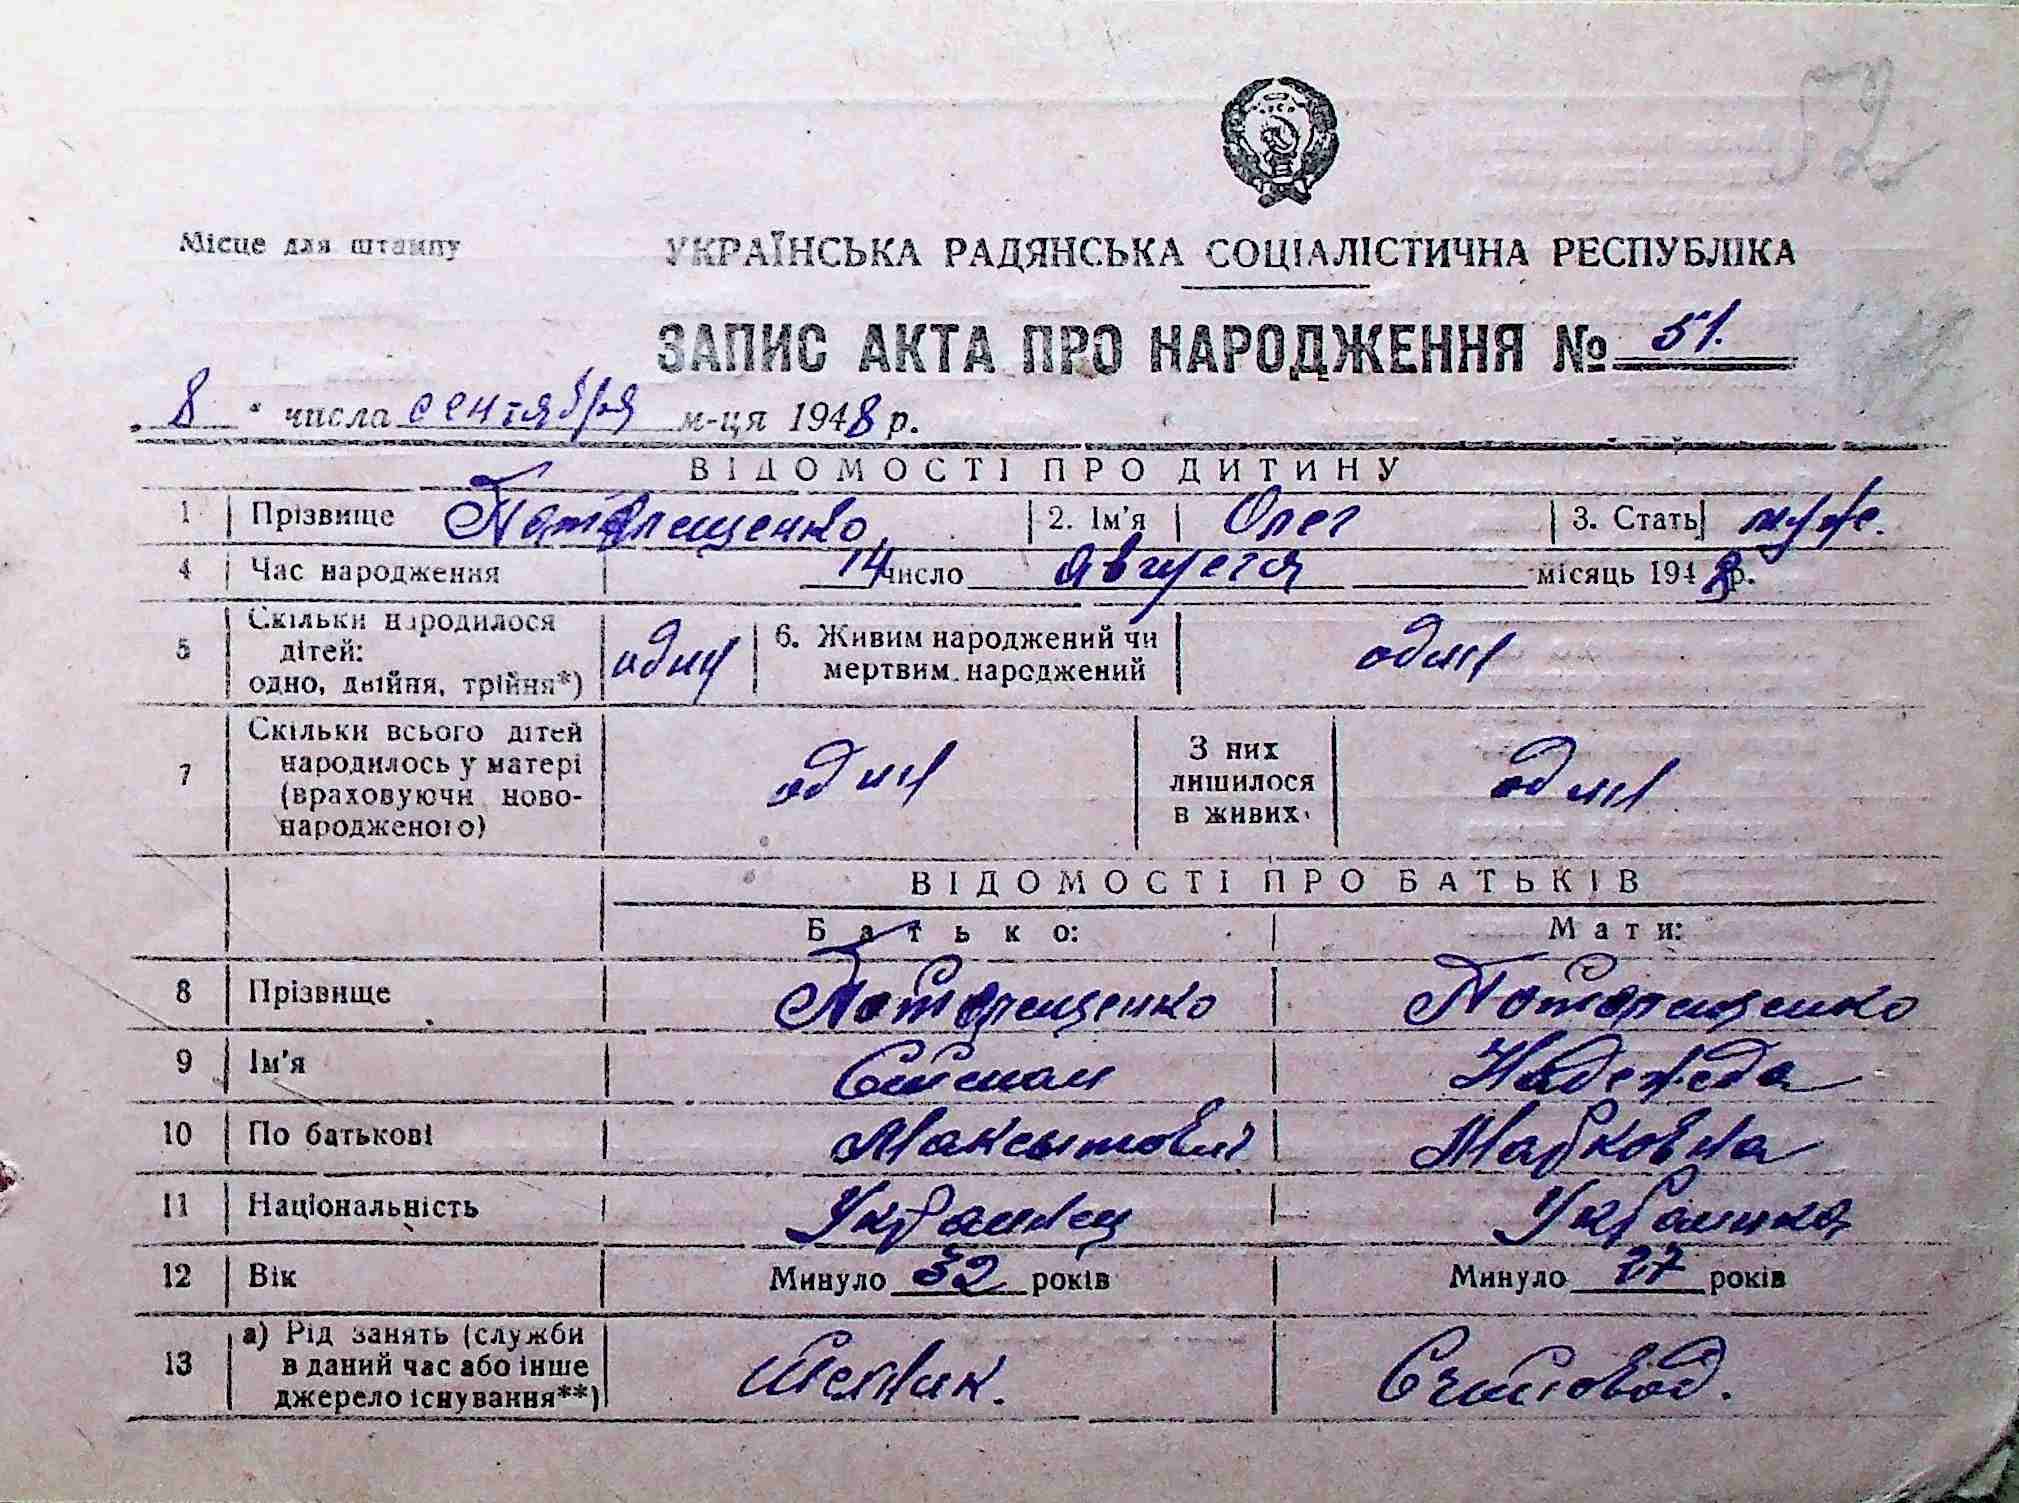 52
Місце для штампу
УКРАЇНСЬКА РАДЯНСЬКА СОЦІАЛІСТИЧНА РЕСПУБЛІКА
ЗАПИС АКТА ПРО НАРОДЖЕННЯ № 51.
8 " числа сентября м-ця 1948 р.
ВІДОМОСТІ ПРО ДИТИНУ
1 Прізвище 2. Ім'я Олег 3. Стать муж.
4 Час народження 14 число августа місяць 1948 р.
5 Скільки народилося дітей: одно, двійня, трійня*) один 6. Живим народжений чи мертвим народжений один
7 Скільки всього дітей народилось у матері (враховуючи новонародженого) один З них лишилося в живих один
ВІДОМОСТІ ПРО БАТЬКІВ
Батько: Мати:
8 Прізвище
9 Ім'я Надежда
10 По батькові Максимович Марковна
11 Національність Украинец Украинка
12 Вік Минуло 32 років Минуло 27 років
13 а) Рід занять (служби в даний час або інше джерело існування**) Счетовод.